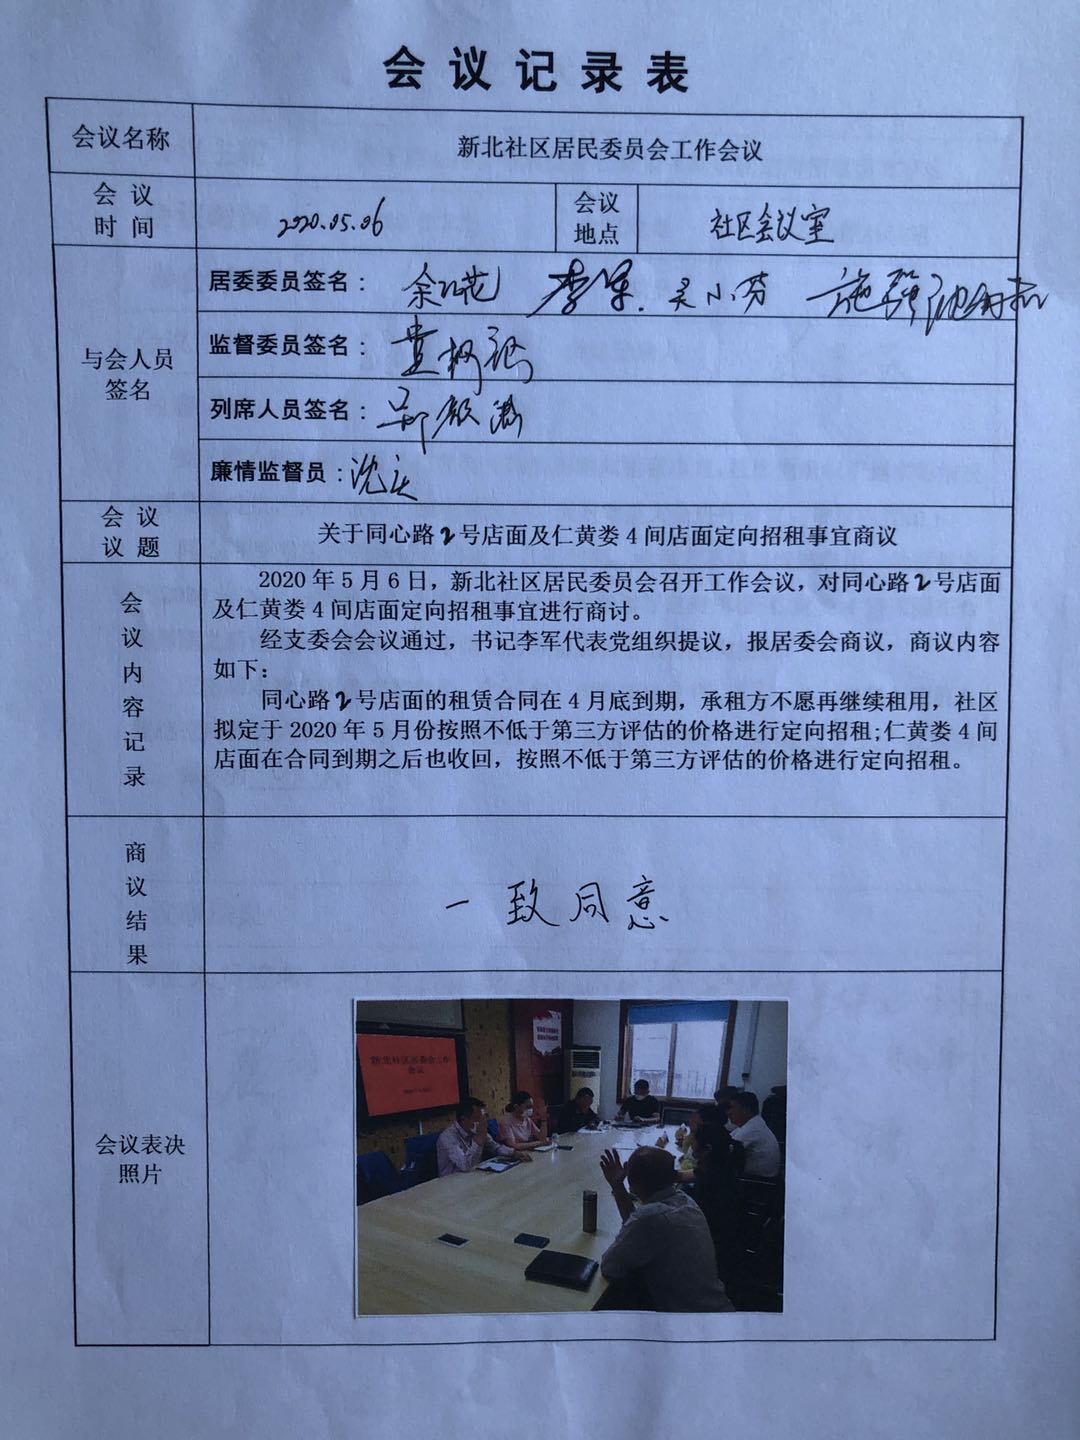 会议记录表
会议名称
新北社区居民委员会工作会议
会议
时间
2020.05.06
会议
地点
社区会议室
与会人员
签名
居委委员签名：
李军
吴小芬
监督委员签名：
列席人员签名：
廉情监督员：
会议
议题
关于同心路2号店面及仁黄娄4间店面定向招租事宜商议
会议内容记录
2020年5月6日，新北社区居民委员会召开工作会议，对同心路2号店面
及仁黄娄4间店面定向招租事宜进行商讨。
经支委会会议通过，书记李军代表党组织提议，报居委会商议，商议内容
如下：
同心路2号店面的租赁合同在4月底到期，承租方不愿再继续租用，社区
拟定于2020年5月份按照不低于第三方评估的价格进行定向招租;仁黄娄4间
店面在合同到期之后也收回，按照不低于第三方评估的价格进行定向招租。
商议结果
一致同意
会议表决
照片
新北社区居委会工作
会议